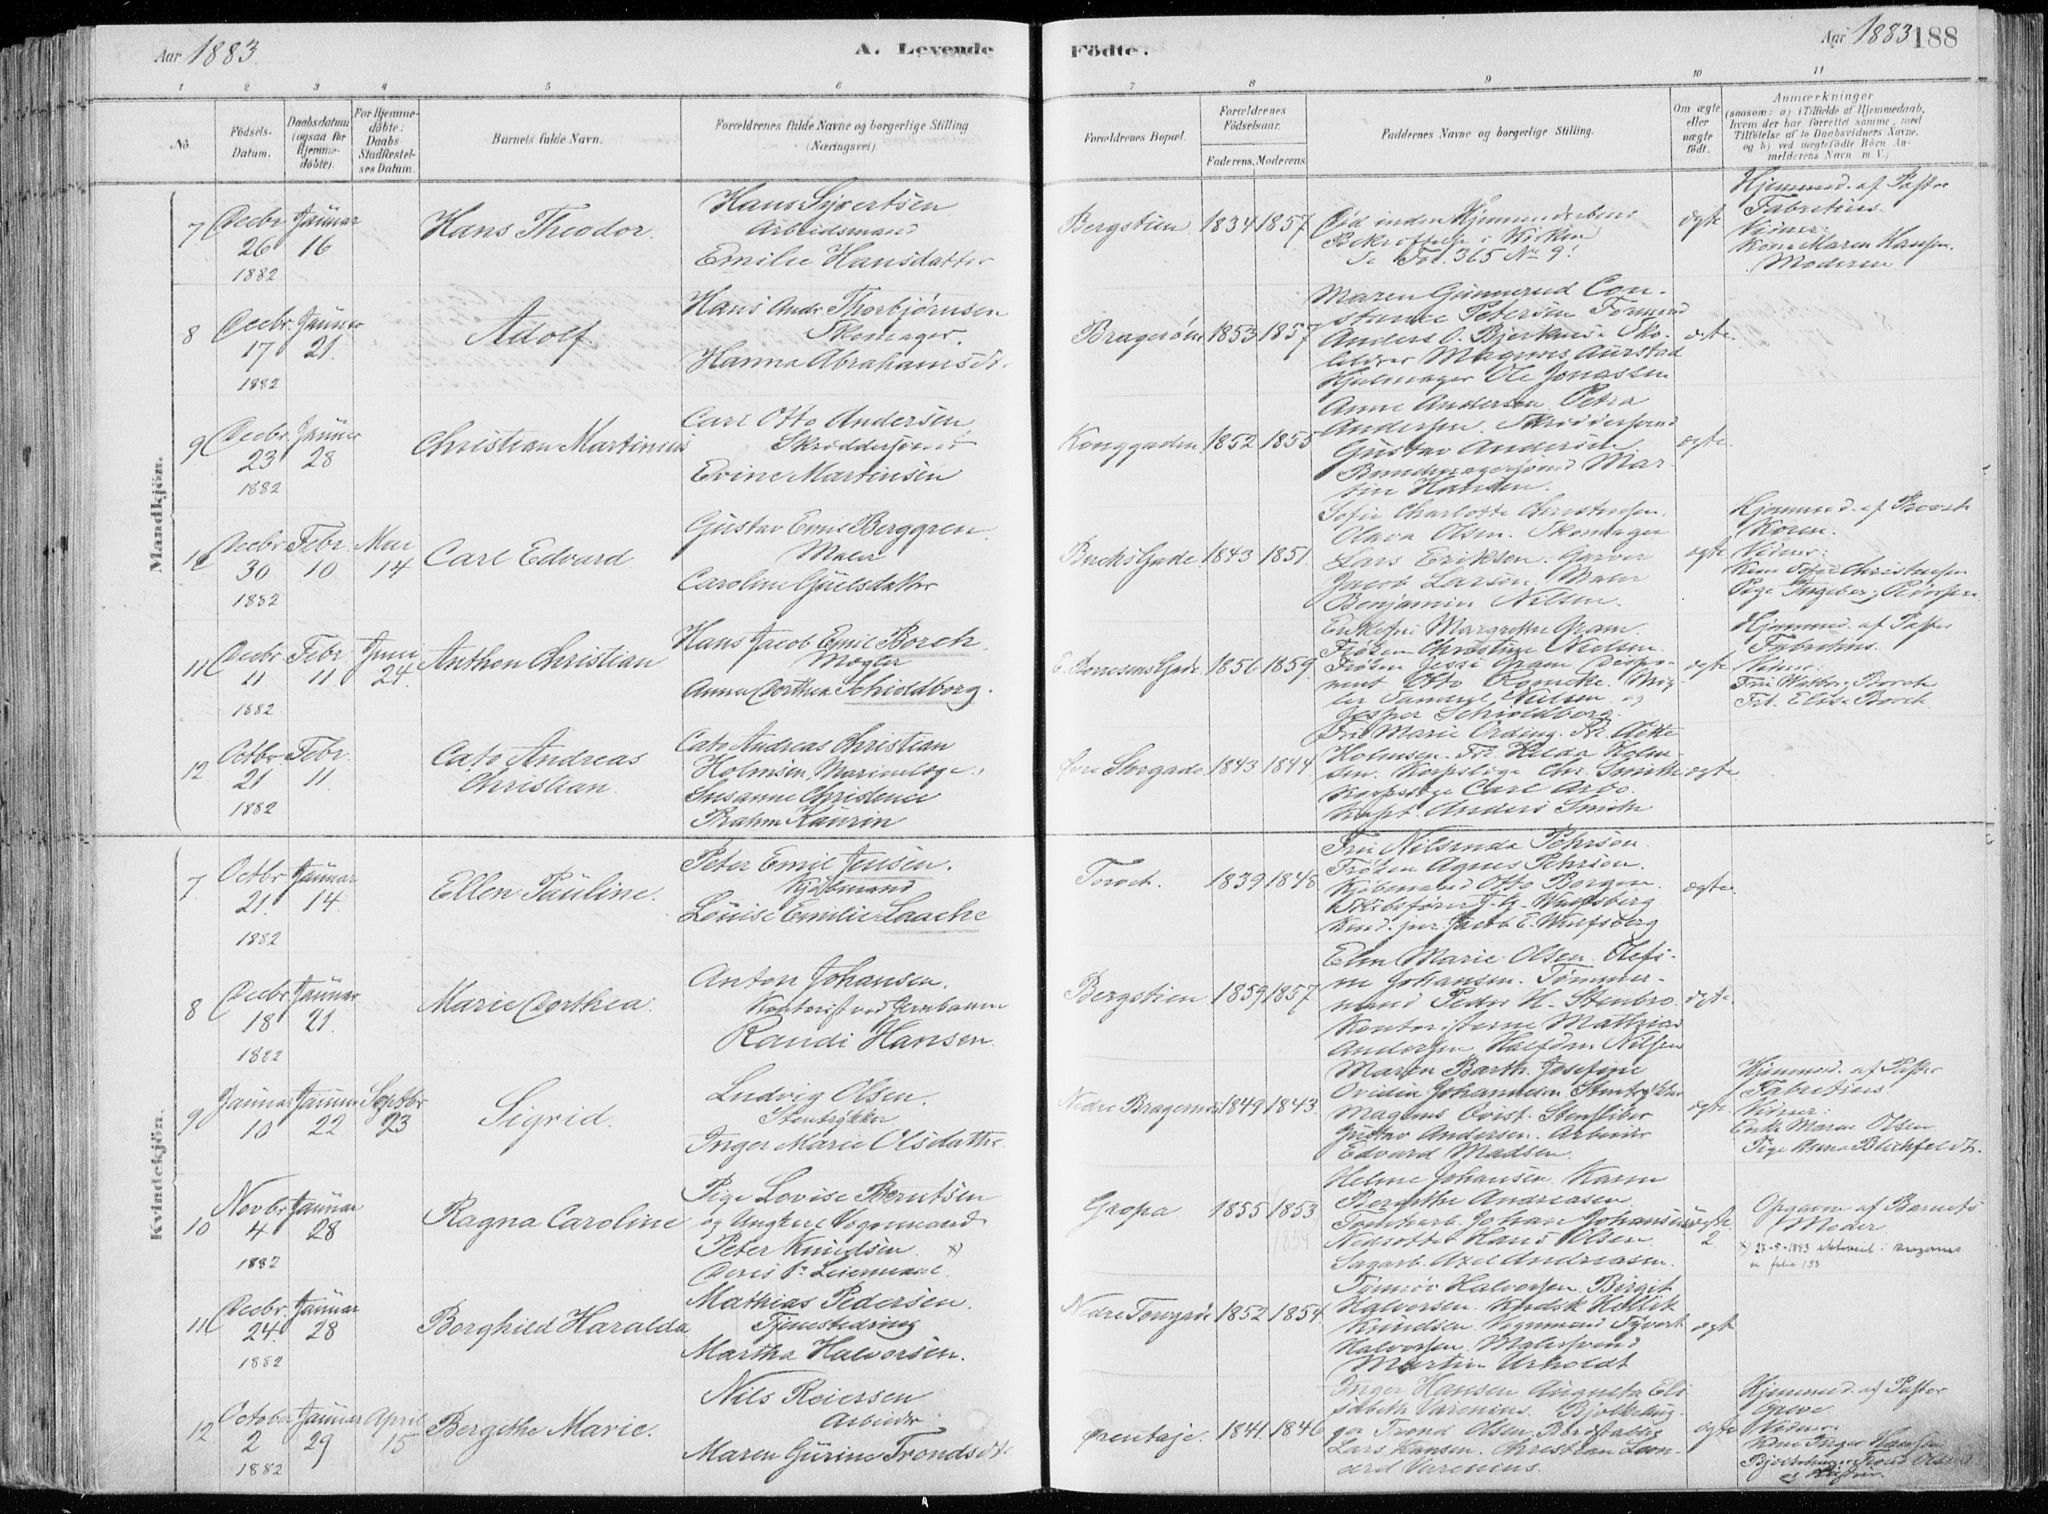 Aar 1883.
A. Levende
Födte.
Aar 1883
188
1 2 3 4 5 6 7 8 9 10 11
No.
Födsels-Datum.
Daabsdatum (ogsaa for Hjemmedöbte).
For Hjemmedöbte: Daabs-Stadfæstelses Datum.
Barnets fulde Navn.
Forældrenes fulde Navne og borgerlige Stilling
(Næringsvei).
Forældrenes Bopæl.
Forældrenes Födselsaar.
Faderens. Moderens.
Faddernes Navne og borgerlige Stilling.
Om ægte eller uægte födt.
Anmærkninger
(saasom: a) i Tilfælde af Hjemmedaab, hvem der har forrettet samme, med Tilföielse af to Daabsvidners Navne, og b) ved uægtefödte Börn Anmelderens Navn m. V.)
Mandkjön.
7 Decbr 26 1882 Januar 16
Hans Theodor.
Hans Syvertsen
Arbeidsmand
Emilie Hansdatter
Bergstien 1834 1857
Död inden Hjemmedaabens
Bekræftelse i Kirken
Se Fol. 365 No 9!
ægte
Hjemmed. af Pastor
Fabritius.
Vidner:
Kone Maren Hansen.
Moderen
8 Decbr. 17 1882 Januar 21.
Adolf.
Hans Andr. Thorbjørnsen
Skomager.
Hanna Abrahamsdt.
Bragerøen 1853 1857
Maren Gunnerud Con-
stance Petersen Formand
Anders O. Bjerknes Sko-
Magnus Aurstad
Hjulmager Ole Jonassen
ægte.
9 Decbr. 23 1882 Januar 28
Christian Martinius
Carl Otto Andersen
Skræddersvend
Evine Martinsen
Konggaden 1852 1855
Anne Andersen Petra
Andersen. Skræddersvend
Gustav Andersen.
Bundtmagersvend Mar-
tin Hansen.
ægte.
10 Decbr 30 1882 Febr. 10 Mai 14
Carl Edvard
Gustav Emil Berggren.
Maler
Caroline Gulsdatter
Bucks Gade 1843 1851.
Sofie Charlotte Christensen.
Olava Olsen. Skomager
Lars Eriksen. Garver
Jacob Larsen. Maler
Benjamin Nilsen.
ægte
Hjemmed. af Provst
Koren.
Vidner:
Kone Sofie Christensen
Pige Ingeborg Pedersen
11 Decbr 11 1882 Febr 11 Juni 24.
Anthon Christian
Hans Jacob Emil Borch.
Mægler
Anna Dorthea Schioldborg.
1856 1859.
Enkefru Margrethe Gram.
Frøken Christine Nielsen.
Frøken Jessi Gram Dispo-
nent Otto Roncke. Mæg-
ler Samuel Nielsen og
Jesper Schioldborg.
ægte
Hjemmed. af Pastor
Fabritius.
Vidner:
Fru Borch
Frk. Elise Borch
12. Octbr. 21 1882 Febr. 11.
Cato Andreas
Christian.
Cato Andreas Christian
Holmsen, Marinelæge.
Susanne Christence
Prahm Kaurin
Øvre Storgade 1843 1844
Fru Marie Ording. Fr. Aette
Holmsen. Fr. Hilda Holm-
sen. Korpslæge Chr. Smith
Korpslæge Carl Arbo.
Kapt. Anders Smith
ægte
Kvindekjön.
7. Octbr 21. 1882 Januar 14.
Ellen Pauline.
Peter Emil Jensen.
Kjøbmand
Louise Emilie Laache
Torvet. 1839 1848
Fru Nilsenda Pehrson.
Frøken Agnes Pehrson.
Kjøbmand Otto Borgen.
Skibsfører J. G. Wulfsberg
Kand. jur. Jacob E. Wulfsberg
ægte.
8 Decbr. 18 1882 Januar 21.
Marie Dorthea.
Anton Johansen.
Kontorist ved Jernbanen
Randi Hansen.
Bergstien 1859 1857
Elen Marie Olsen. Olefi-
ne Johansen. Tømmer-
mand Peder H. Stenbro.
Kontoristerne Mathias
Andersen Halfdan Nilsen
ægte.
9 Januar 10 Januar 22. Septbr 23
Sigrid.
Ludvig Olsen.
Stentrykker
Inger Marie Olsdatter.
Nedre Bragernes 1849 1843.
Maren Barth. Josefine
Ovidia Johannesen Stentrykker
Magnus Qvist. Stensliber
Gustav Andersen. Arbeider
Edvard Madsen.
ægte.
Hjemmed. af Pastor
Fabritius.
Vidner:
Enke Maren Olsen
Pige Anna Blichfeldt.
10 Novbr 4 1882 Januar 28
Ragna Caroline
Pige Lovise Berntsen
og Ungkarl Vognmand
Peter Knudsen. x)
Deres 1ste Leiermaal.
Gropa 1855 1853
1854
Helene Johansen Karen
Bergithe Andreasen
Johan Johansen
Hans Olsen.
Sagarb. Axel Andreasen.
uægte
2
Opgaven af Barnets
Moder.
x) 27-5-1883 ektevied i Bragernes
se folio 153
11 Decbr. 24. 1882 Januar 28
Borghild Haralda
Mathias Pedersen.
Tjenestedreng
Martha Halvorsen.
Nedre Torvgade 1852 1854.
Tønnøv Halvorsen. Birgit
Halvorsen. Kudsk Kittil
Knudsen. Vognmand Syvert
Halvorsen. Malersvend
Martin Urholdt
ægte
12 October 2 1882 Januar 29 April 15
Bergethe Marie.
Nils Reiersen
Arbeider
Maren Gurine Trondsdt.
Ørentaje. 1841 1846
Inger Hansen Augusta Eli-
sabeth Varenius. Bjelkehug-
ger Trond Olsen.
Lars Hansen. Christian Leon-
ard Varenius.
ægte
Hjemmed. af Pastor
Greve.
Vidner:
Kone Inger Hansen
Bjelkehugger Trond Olsen